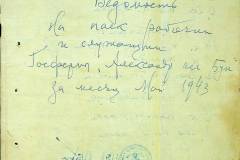 Ведомость
На паек рабочим
и служащим
Госфермы "Александр
за месяц Май 1943